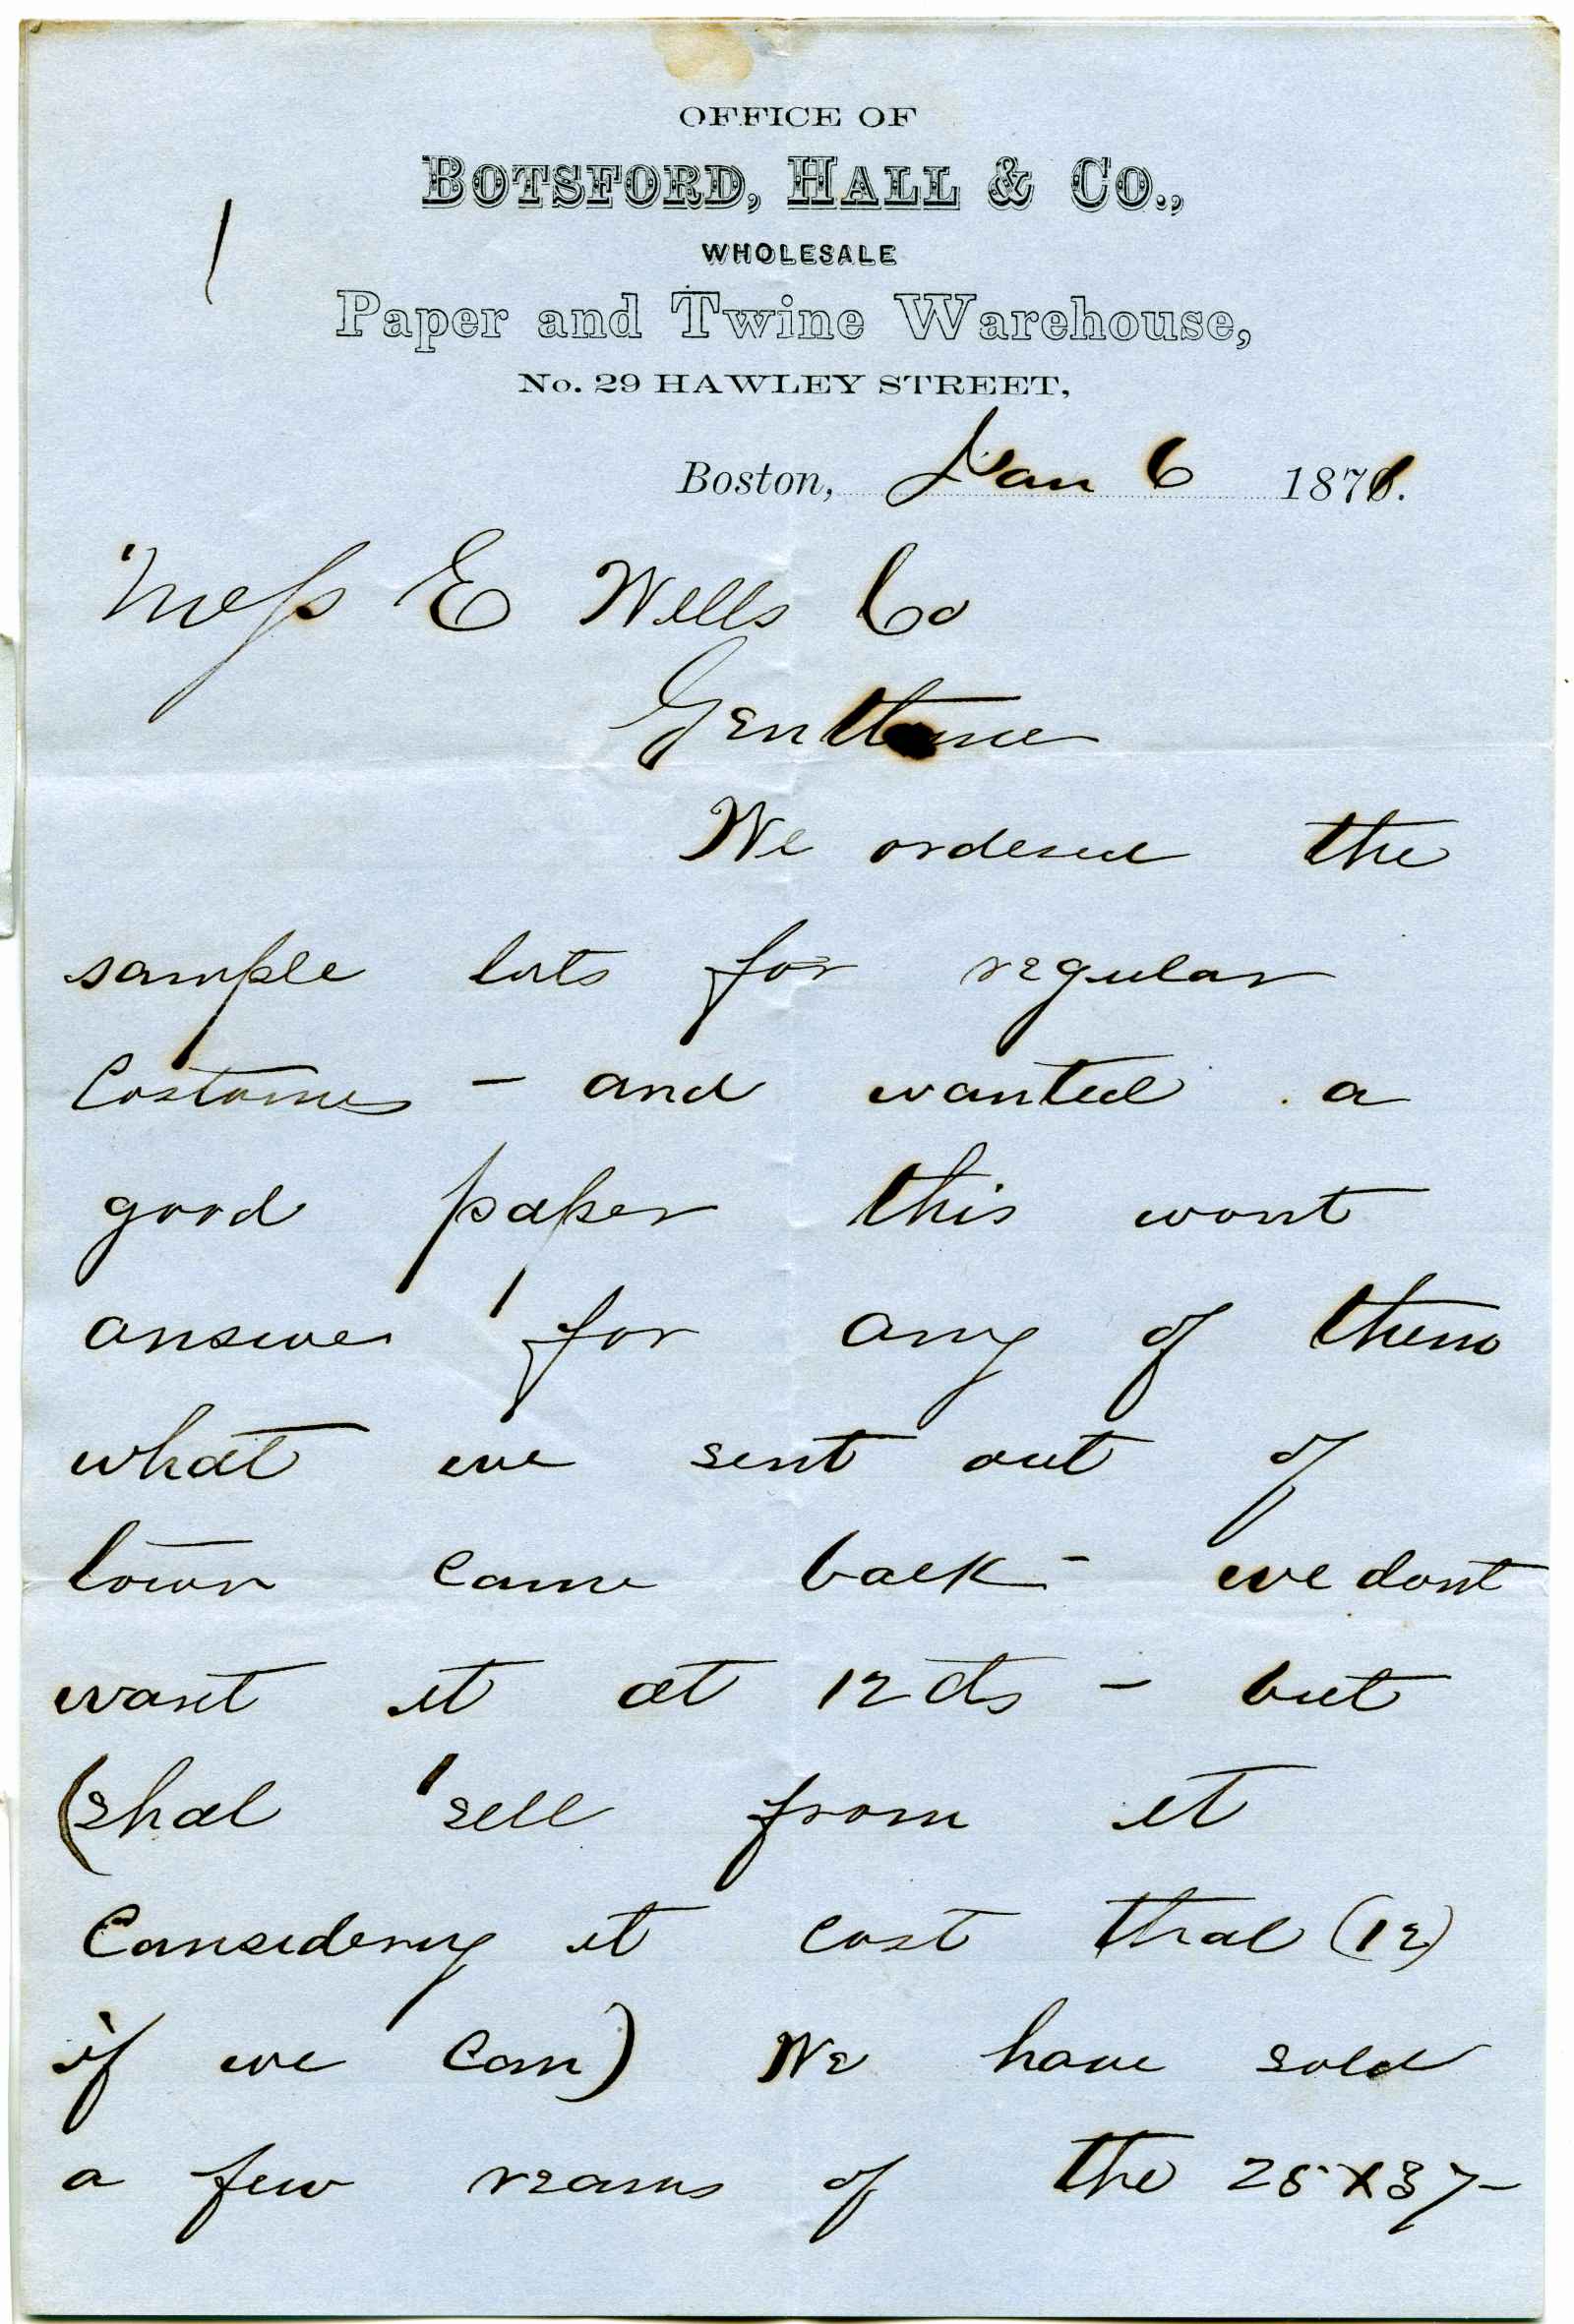 OFFICE OF
BOTSFORD, HALL & CO.,
WHOLESALE
Paper and Twine Warehouse,
No. 29 HAWLEY STREET,
Boston, Jan 6 1871.
Mess E Wells Co
Gentleme
We ordered the
sample lots for regular
Costomes - and wanted a
good paper this wont
answer for any of them
what we sent out of
town came back - we dont
want it at 12 cts - but
(shal sell from it
Considering it cost that (12)
if we can) We have sold
a few reams of the 25 X 37 -